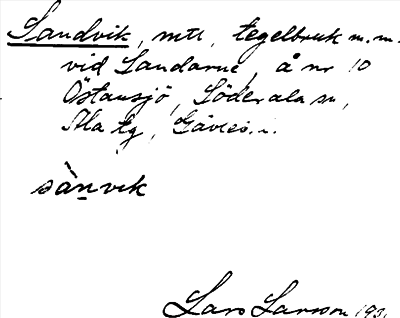 Sandvik, mtl, tegelbruk m.m.
vid Sandarne, å nr 10
Östansjö, Söderala sn,
Ala tg, Gävles. l.
sànvik
Lars Larsson 193